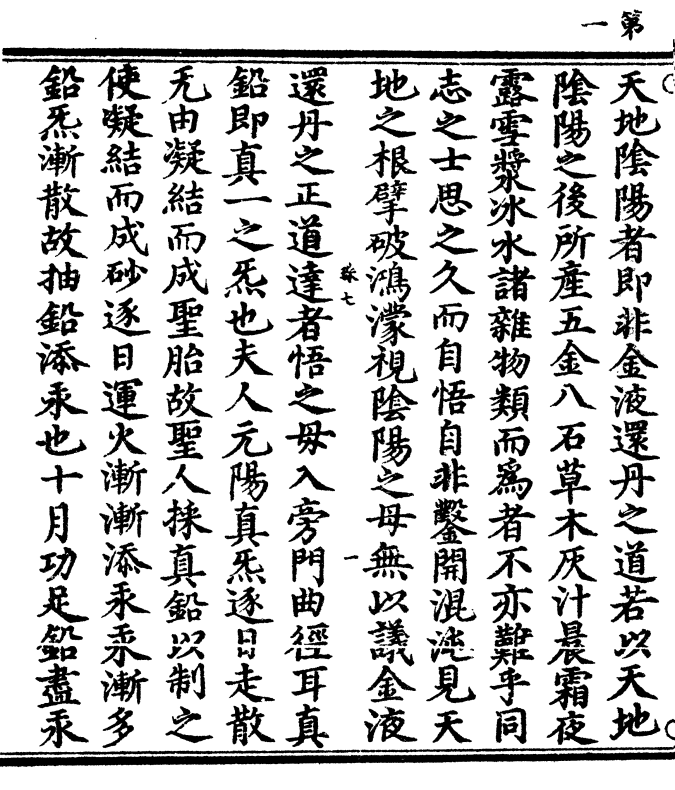 第一
天地陰陽者即非金液還丹之道若以天地
陰陽之後所產五金八石草木灰汁晨霜夜
露雪漿冰水諸雜物類而為者不亦難乎同
志之士思之久而自悟自非鑿開混沌見天
地之根擘破鴻濛視陰陽之母無以議金液
珠七
一
還丹之正道達者悟之毋入旁門曲徑耳真
鉛即真一之炁也夫人元陽真炁逐日走散
无由凝結而成聖胎故聖人採真鉛以制之
使凝結而成砂逐日運火漸漸添汞汞漸多
鉛炁漸散故抽鉛添汞也十月功足鉛盡汞